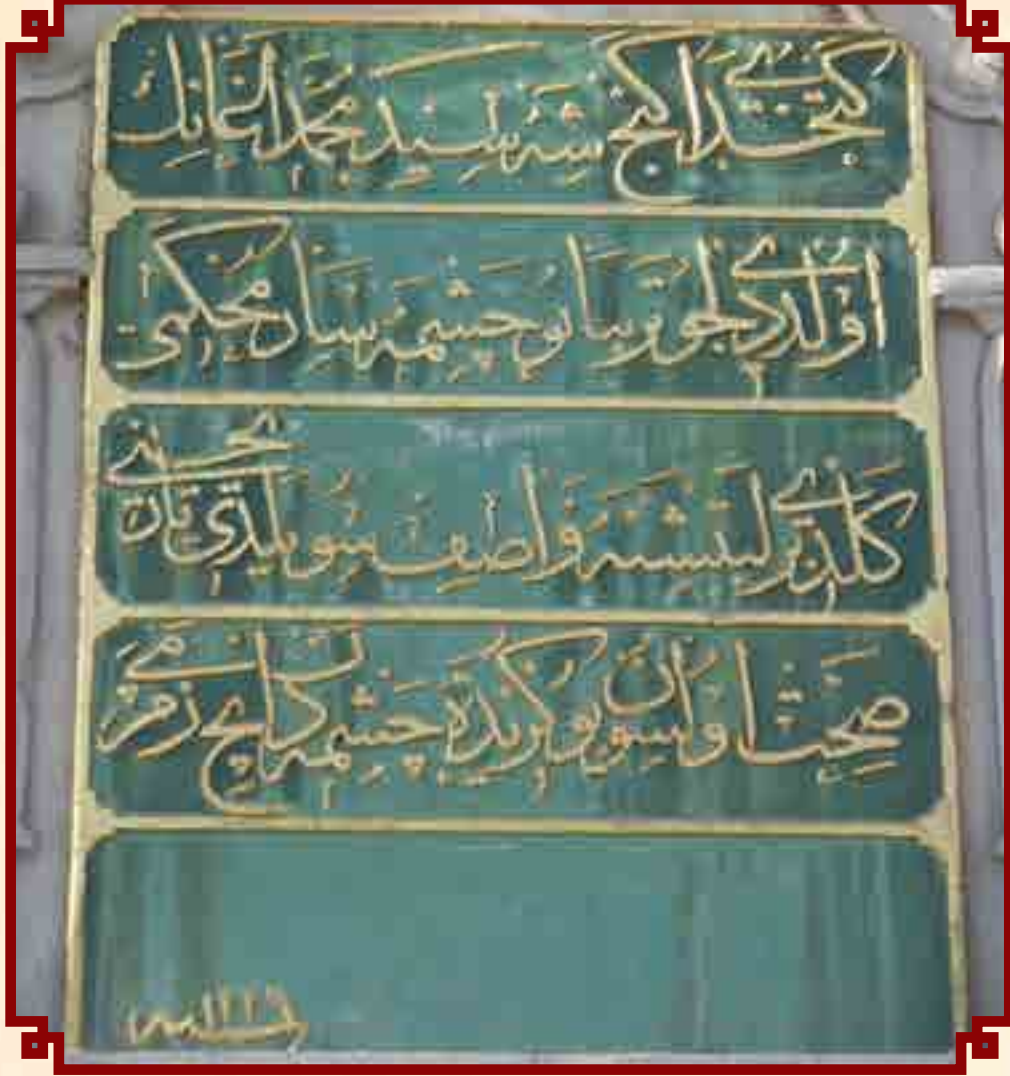 كتخداي كنج شه سيد محمد اغانك
اولدي دلجو نوبنا بو چشمه سار محكمى
كلدي بر لبتشنه واصف سويلدى تاريخني
صحت اولسون بو كزيده چشمه دن ايچ زمزمي